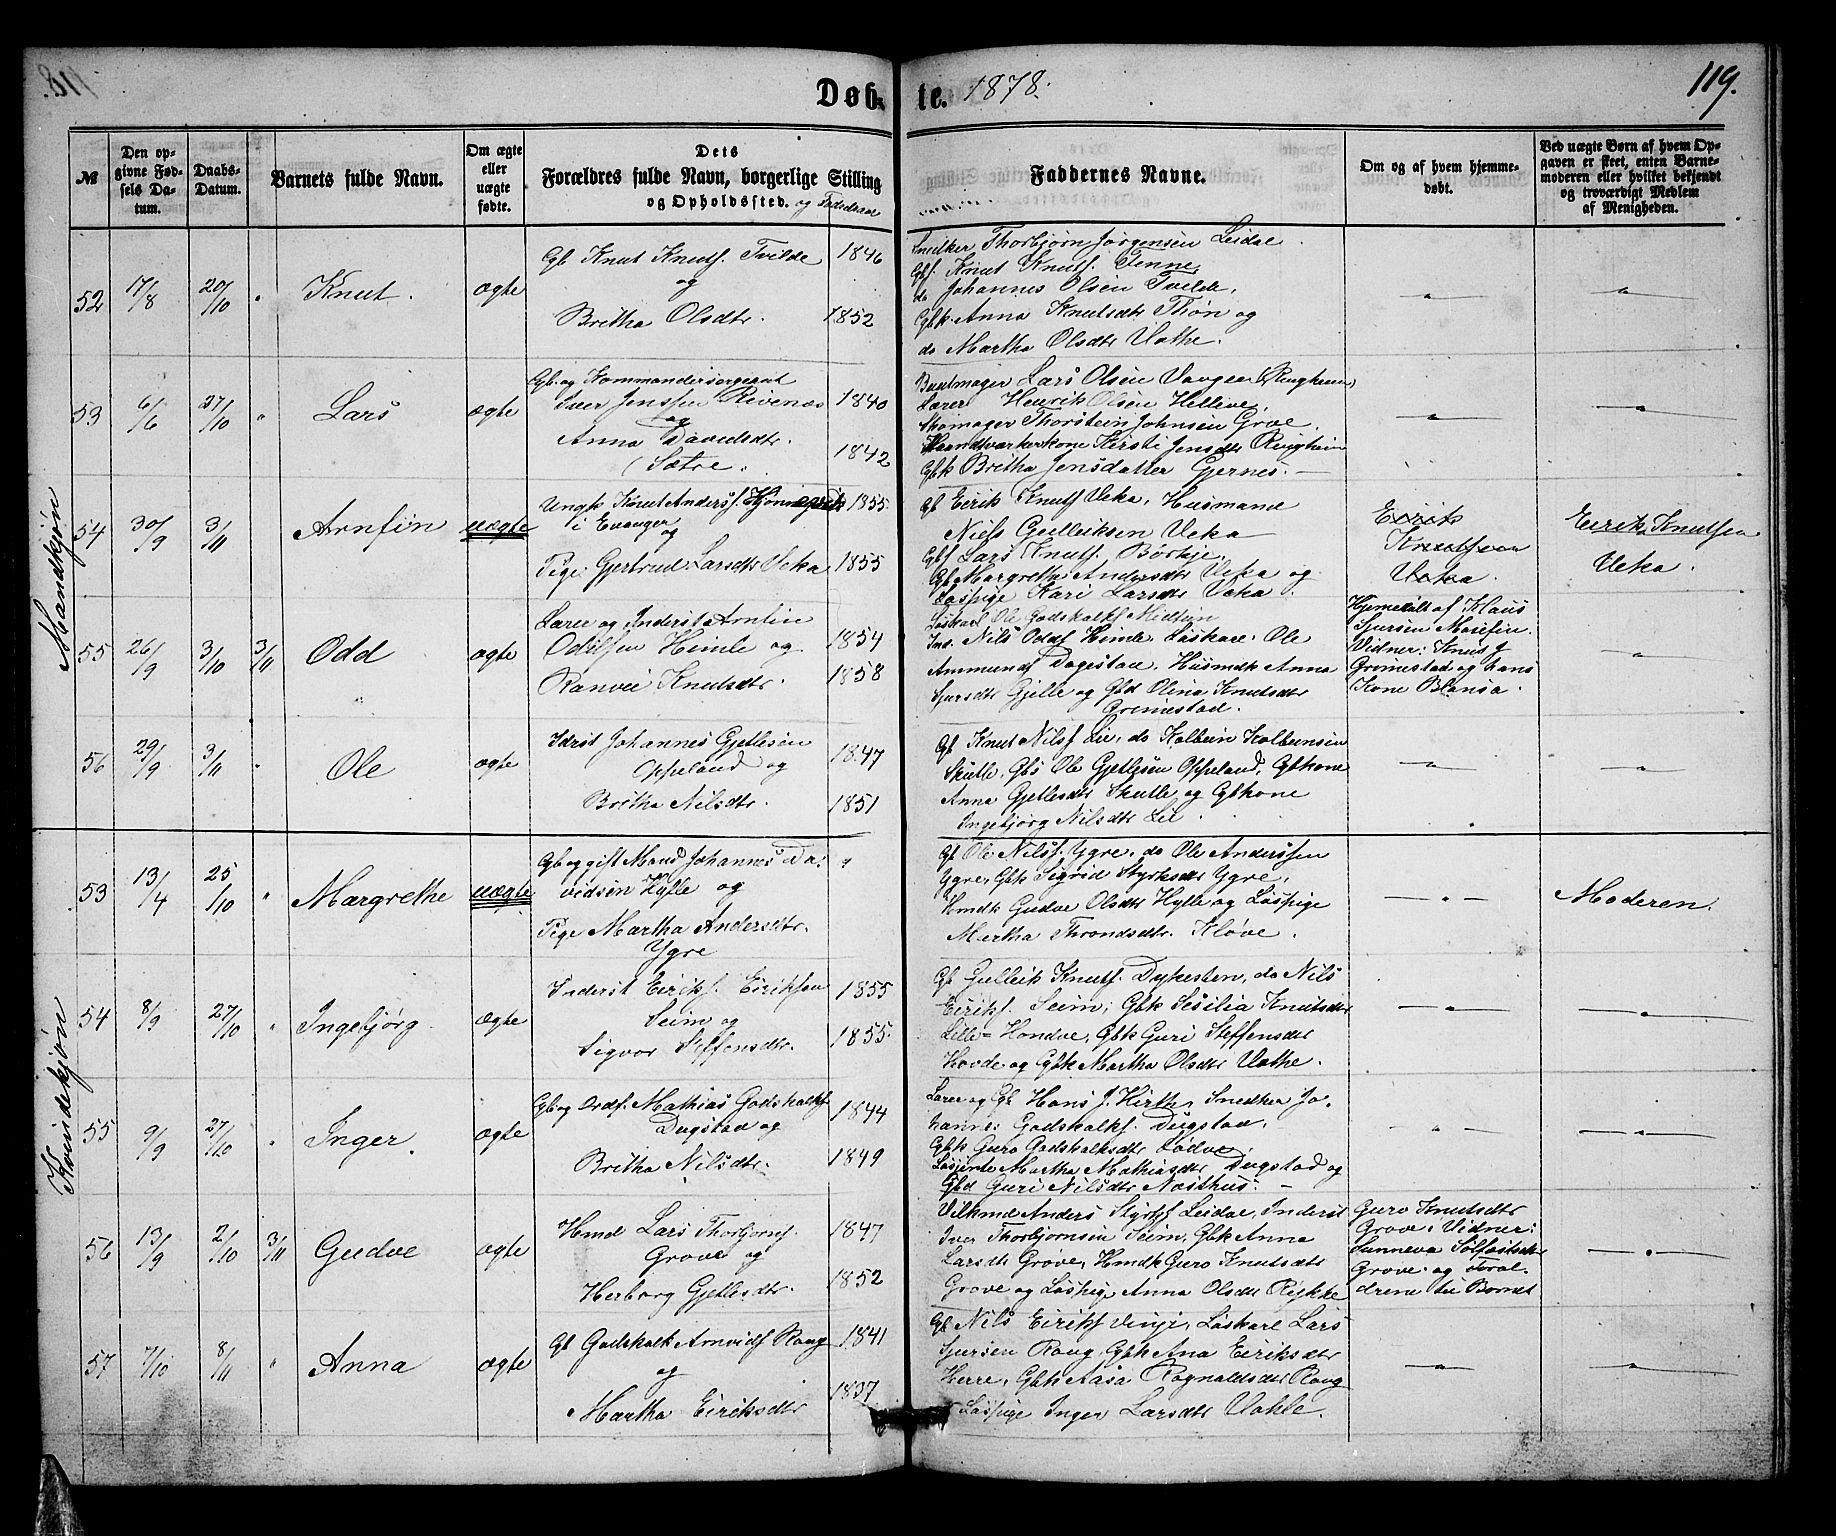 118.
Døb-
te. 1878.
119.
№
Den op-
givne Fød-
sels Da-
tum.
Daabs-
Datum.
Barnets fulde Navn.
Om ægte
eller
uægte
fødte.
Dets
Forældres fulde Navn, borgerlige Stilling
og Opholdssted. og Fødselsaar
Faddernes Navne.
Om og af hvem hjemme-
døbt.
Ved uægte Børn af hvem Op-
gaven er skeet, enten Barne-
moderen eller hvilket bekjendt
og troværdigt Medlem
af Menigheden.
Mandkjøn
52 17/8 20/10 " Knut. ægte
Gb Knut Knuts. Tvilde 1846
og
Britha Olsdtr. 1852
Snedker Thorbjørn Jørgensen Leidal
Gbs. Knut Knuts. Tenne,
do Johannes Olsen Tvilde,
Gbk. Anna Knutsdtr Thøn og
do Martha Olsdtr Vathe.
53 6/6 27/10 " Lars ægte
Gb. og Kommandersergeant
Iver Jenssen Rivenæs 1840
og
Anna Davidsdtr. 1842
Sætre.
Buntmager Lars Olsen Vangen (Ringheim)
Lærer Henrik Olsen Hellive,
Skomager Thorstein Johnsen Grove.
Haandtværkerkone Kirsti Jensdtr Ringheim
Gbk Britha Jensdatter Gjernes. —
54 30/9 3/11 Arnfin uægte
Ungk Knut Anders. 1855
i Evanger og
Pige Gjertrud Larsdtr Veka 1855
Gb Eirik Knuts Veka, Husmand
Niels Gulleiksen Veka
Gb Lars Knuts. Børkje,
Gb Margretha Andersdtr Veka og
Løspige Kari Larsdtr Veka.
Eirik
Knutsen
Veka.
Eirik Knutsen
Veka.
55 26/9 3/10 3/11 Odd ægte
Lærer og Inderst Arnfin
Oddsen Himle og 1854
Ranvei Knutsdtr. 1858
Løskarl Ole Godskalks Midtun
Ind. Nils Odds Himle, Løskarl Ole
Ammunds Dagestad, Husmdk Anna
Sjursdtr Gjelle og Gbd Olina Knutsdtr
Grimestad.
Hjemedøbt af Klaus
Sjursen Møefin.
Vidner: Knut
Grimestad og hans
Kone
56 29/9 3/11 " Ole ægte
Idrst Johannes Gjetlesen 1847
Oppeland og
Britha Nilsdtr. 1851
Gb Knut Nilss Lie, do Kolbein Kolbeinsen
Skutle, Gbs Ole Gjetlesen Oppeland, Gbkone
Anna Gjetlesdtr Skutle og Gbkone
Ingebjørg Nilsdtr Lie
Kvindekjøn
53 13/4 25/10 " Margrethe uægte
Gb og gift Mand Johannes Da- "
vidsen Hylle og
Pige Martha Andersdtr.
Ygre
Gb Ole Nilss. Ygre, do Ole Anderssen
Ygre, Gbk Sigrid Styrksdtr Ygre,
Hmdk Gudve Olsdtr Hylle og Løspige
Martha Throndsdtr. Kløve.
Moderen.
54 8/9 27/10 " Ingebjørg ægte
Inderst Eiriks. Eiriksen 1855
Seim og
Sigvor Steffensdtr. 1855.
Gb Gulleik Knuts. Dykesten, do Nils
Eiriks. Seim, Gbk Sesilia Knutsdtr
Lille-Hondve, Gbk Guri Steffensdtr
Hovde og Gbk Martha Olsdtr Vathe.
55 9/9 27/10 " Inger. ægte
Gb og Ordf. Mathias Godskalks 1844
Dugstad og
Britha Nilsdtr. 1849
Lærer og Gb Hans J. Hirth, Snedker Jo-
hannes Godskalks. Dugstad,
Gbk Guro Godskalksdtr Lødve,
Løsjente Martha Mathiasdtr Dugstad og
Gbd Guri Nilsdtr Næsthus. —
56 13/9 2/10 3/11 Gudve ægte
Hmd Lars Thorbjørns. 1847
Grove og
Herborg Gjetlesdtr. 1852
Vilkmd Anders Styrks Leidal, Inderst
Iver Thorbjørnsen Seim, Gbk Anna
Larsdtr Grove, Hmdk Guro Knutsdtr
Grove og Løspige Anna Olsdtr Rykke
Guro Knutsdtr
Grove. Vidner:
Sunneva Sølfæstsdtr
Grove og Foræl-
drene til Barnet
57 7/10 8/11 " Anna ægte
Gb Godskalk Arnvids Roug 1841
og
Martha Eiriksdtr 1837
Gb Nils Eiriks Vinje, Løskarl Lars
Sjursen Roug, Gbk Ana Eiriksdtr
Herre, Gbk Aasa Ragnaldsdtr Roug
Løspige Inger Larsdtr Vahle.